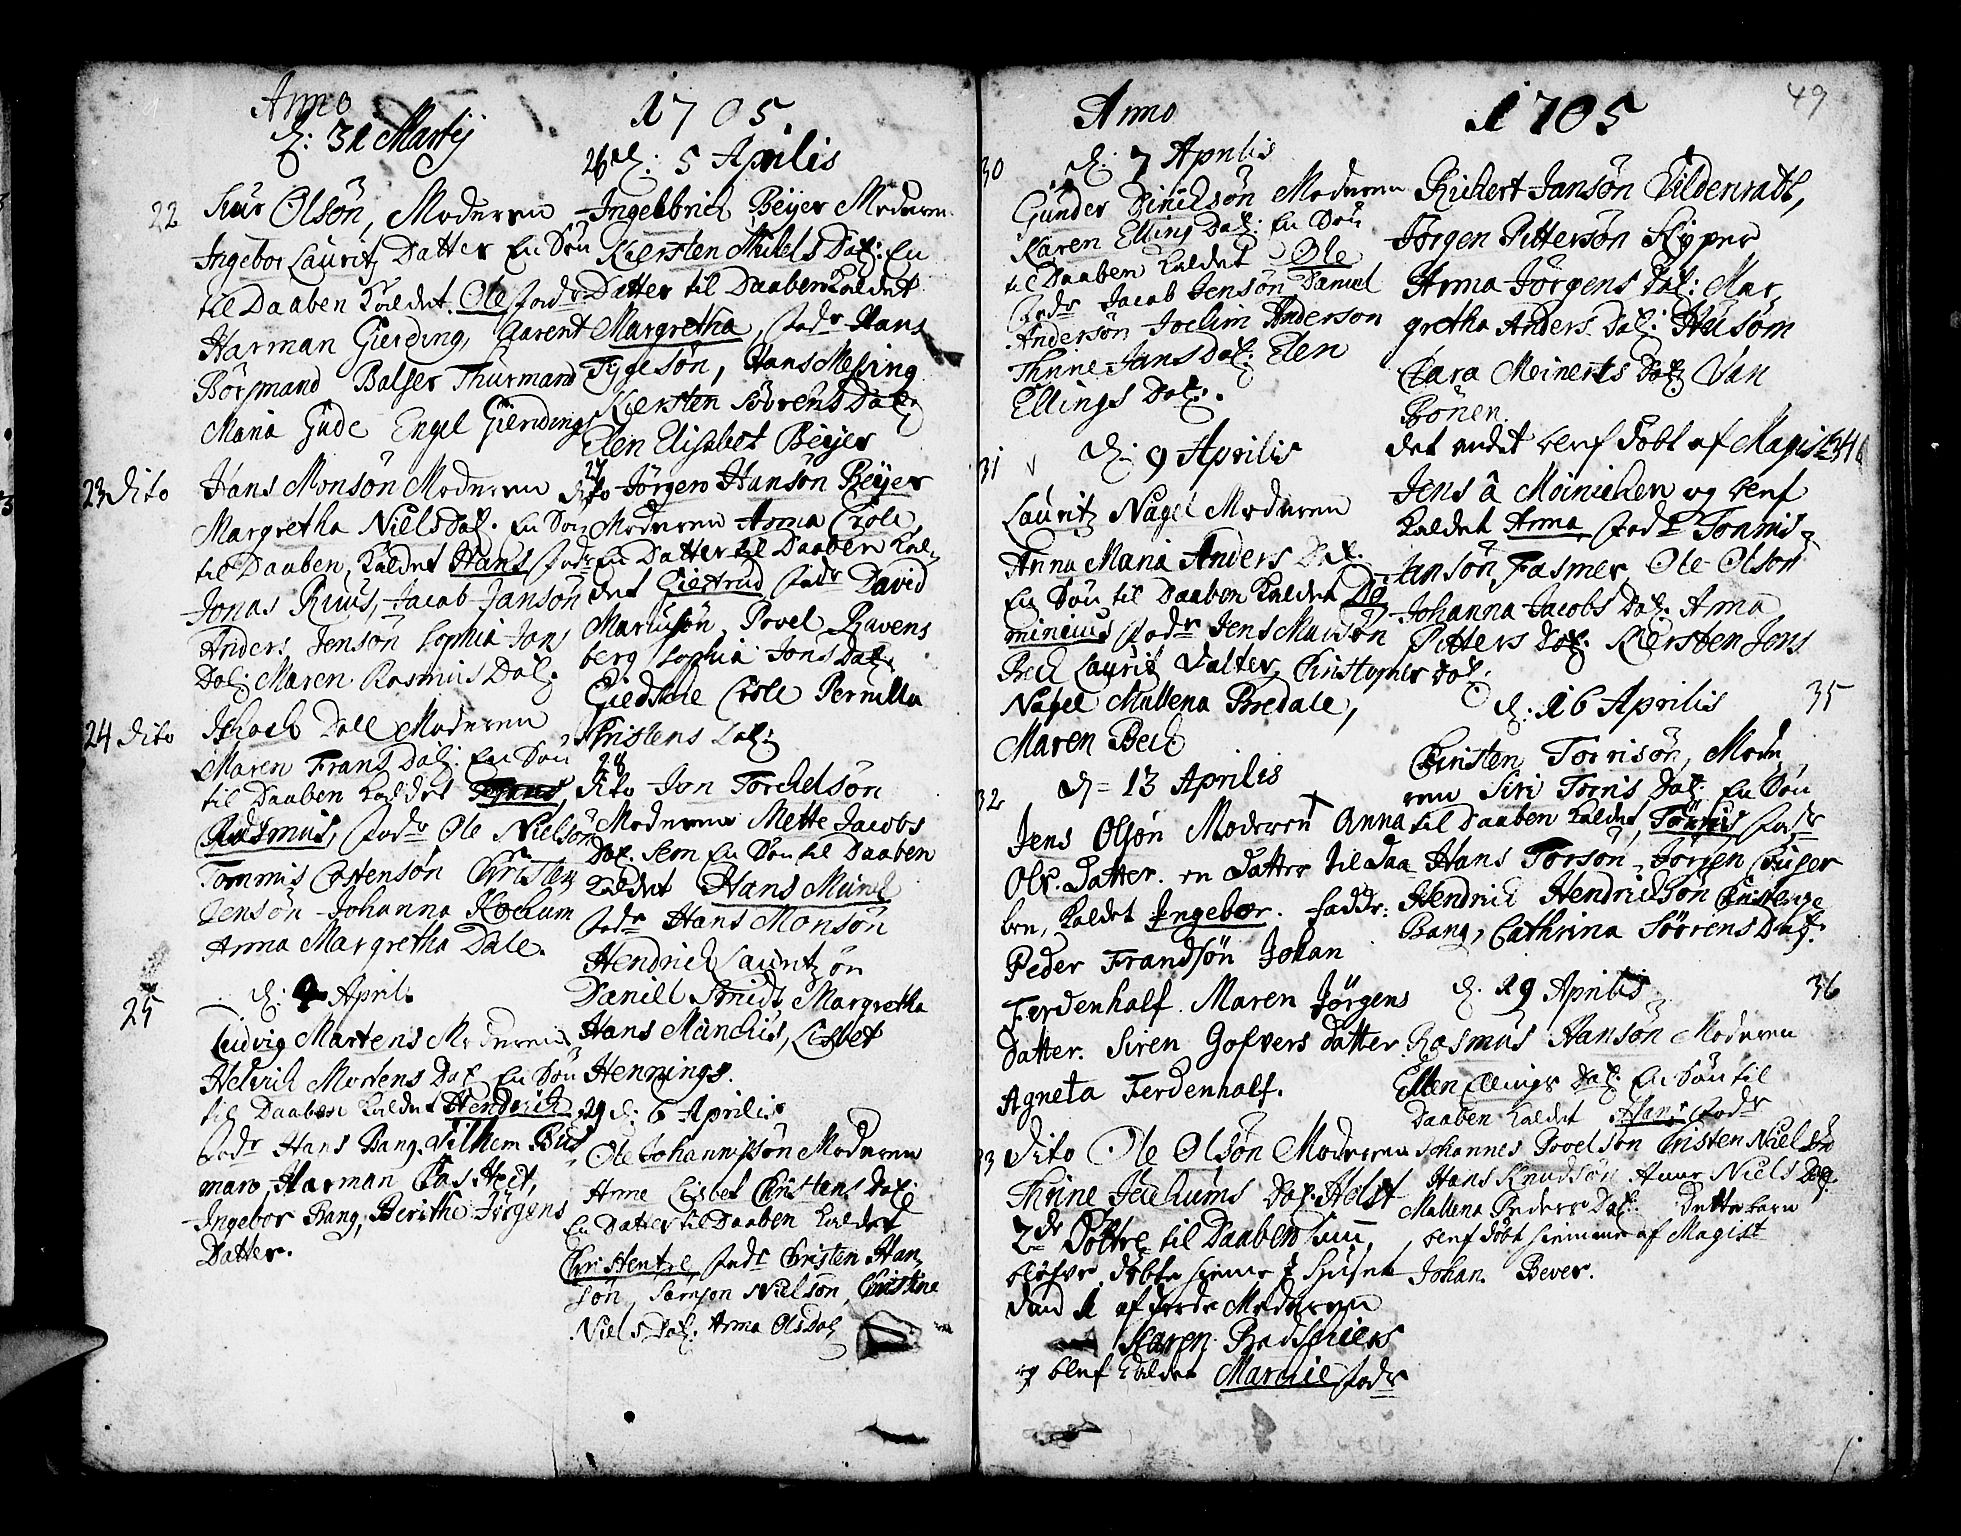 Anno 1705
d: 31 Martij
22 Siur Olsön, Moderen
Ingebor Lauritz Datter En Sön
til Daaben kaldet Ole, fadr
Harman Gierding, Garent
Börsmand Balser Thurmand
Maria Gude Engel Gierdings
23 Dito Hans Monsön Moderen
Margretha Niels Dat: En Sön
til Daaben, kaldet Hans fadr
Jonas Ruus, Jacob Jansön
Anders Jensön Sophia Jans
Dat: Maren Rasmus Dat:
24 Dito Dall Moderen
Maren Frans Dat: En Sön
til Daaben kaldet
Rasmus, fadr Ole Nielsön
Tommis Cortensön Christen
Jensön Johanna Kochum
Anna Margretha Dale.
d: 2 April:
25 Ludvig Martens Moderen
Helvich Mortens Dat En Sön
til Daaben kaldet Hendrich
fadr Hans Bang Vilhem Bus
man, Harman
Ingebor Bang, Berithe Jörgens
Datter.
26 d: 5 Aprilis
Ingelbrich Beÿer Moderen
Kiersten Mikels Dat: En
Datter til Daaben kaldet
Margretha, fadr Hans
Tygesön, Hans Messing
Kiersten Sörens Dat:
Elen Elisabet Beÿer
27 Dito Jörgen Hansön Beÿer
Moderen Anna Crole,
En Datter til Daaben kal-
det Giertrud fadr David
Mariusön, Povel Ravens
berg Sophia Jons Dat:
Giedske Crole Pernilla
Christens Dat:
28 Dito Jon Torchelsön
Moderen Mette Jacobs
Dat. Sem En Sön til Daaben
kaldet Hans Münch
fadr Hans Monsön
Hendrich Lauritzön
Daniell Smidt Margretha
Hans Münchis, Lisbet
Hennings.
29 d: 6 Aprilis
Ole Johannissön Moderen
Anne Lisbet Christens Dat:
En Datter til Daaben kaldet
Christense, fadr Christen Han-
sön, Samson Nielsön, Christine
Niels Dat: Anna Ols Dat
Anno 1705 49
30 d: 7 Aprilis
Gunder Dirichsön Moderen
Karen Ellings Dat: En Sön
til Daaben kaldet Ole
fadr Jacob Jensön Daniel
Andersön Jochim Anderson
Thrine Jans Dat: Elen
Ellings Dat:.
31 d: 9 Aprilis
Lauritz Nagel Moderen
Anna Maria Anders Dat.
En Sön til Daaben kaldet Do-
minicus fadr Jens
Bech Lauritz Valter, Christopher Dat.
Nagel Mallena Bredale,
Maren Bech
32 d= 13 Aprilis
Jens Olsön Moderen Anna
Ols. Datter. en Datter til Daa
ben, kaldet Ingebor. Faddr:
Peder Frandsön Johan
Ferdenhalf. Maren Jörgens
Datter. Siren Gofvers Datter.
Agneta Ferdenhalf.
33 Dito Ole Olsön Moderen
Thrine Jochums Dat. Helst
2de Döttre til Daaben som
blefve döbte hieme i Huset
Dend 1 af Jorde Moderen
Karen Badskiers
og blef kaldet Marchie fadr
Richert Jansön Vildenrath,
Jörgen Pittersön Kyper
Anna Jörgens Dat: Mar
gretha Anders Dat: Husom
Clara Meinerts Dat Van
Bönen.
det andet blef döbt af Magist 34
Jens â Möinichen og blef
kaldet Anna, fadr Tonnis
Jansön Fasmer Ole Olson
Johanna Jacobs Dat. Anna
Pitters Dat. Kiersten Jens
d: 16 Aprilis 35
Christen Torrisön, Mode
ren Siri Torris Dat: En Sön
til Daaben kaldet, Törris fadr
Hans Torsön, Jörgen Crüger
Hendrich Hendrichsön
Bang, Cathrina Sörrens Dat.
d. 29 Aprilis 36
Rasmus Hansön Moderen
Ellen Ellings Dat: En Sön til
Daaben kaldet Hans fadr
Johannes Povelsön Cristen Nielsön
Hans Knudsön Anne Niels Dat.
Mallena Peders Dat: Dette barn
blef döbt hiemme af Magist
Johan Bever.